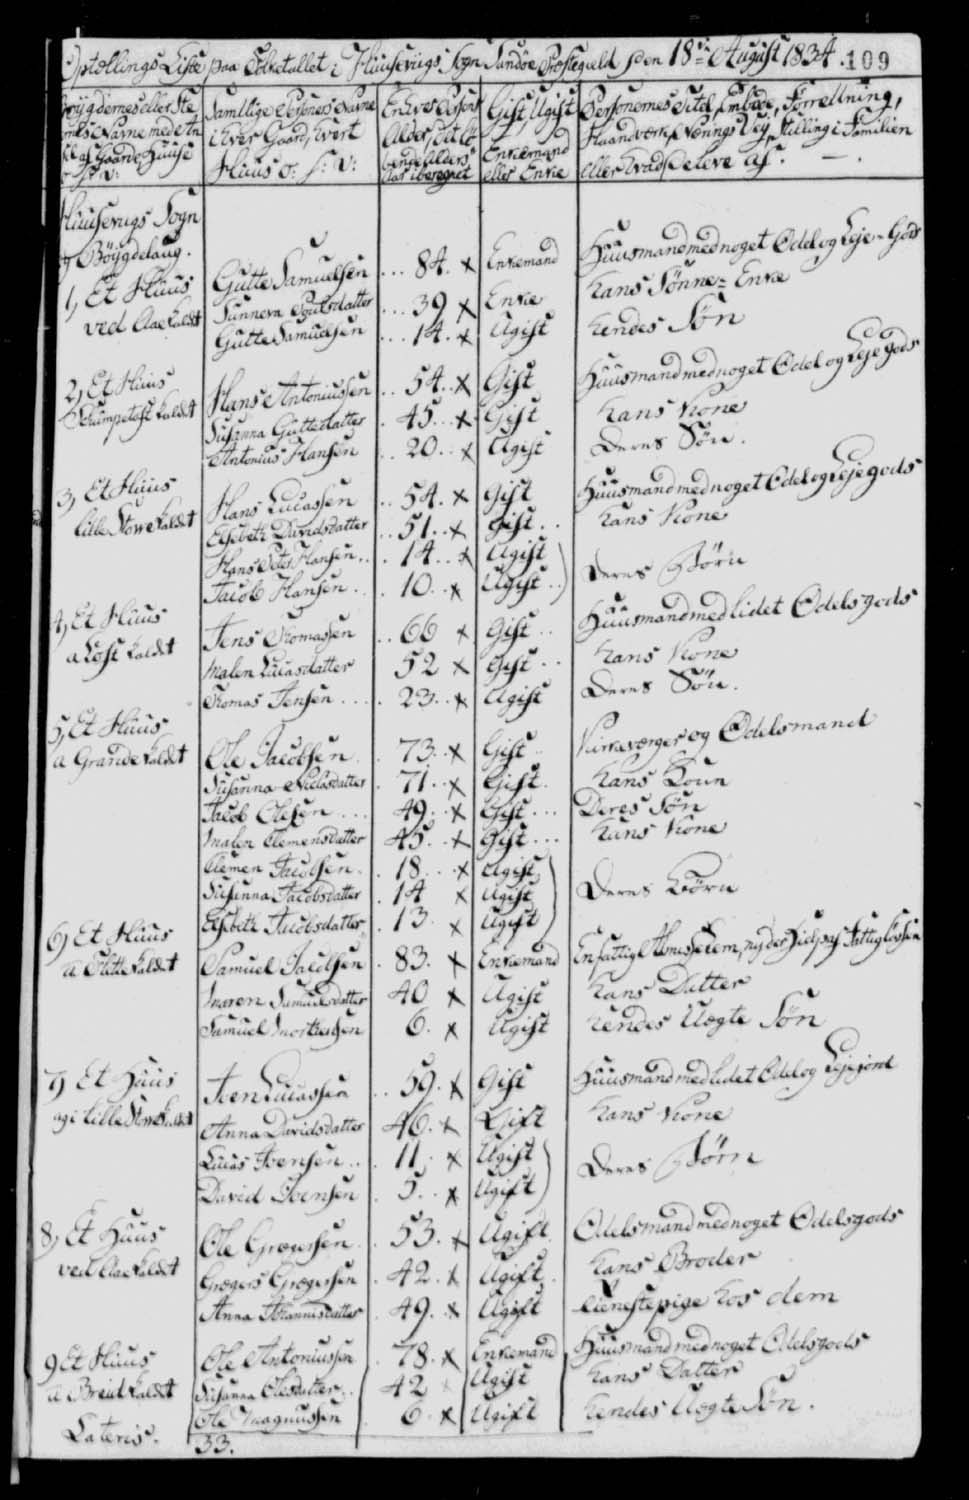 Optællings Liste paa Folketallet i Huusevigs Sogn Sandöe Præstegield den 18de August 1834. 109
Böygdernes eller Ste- | Samtlige Persners Navne | Enhver Persons | Gift, Ugift | Personernes Titel, Embede, Forretning,
Navne med An- | i hver Gaard, hvert | Alder, | Enkemand | Haandværk, Nærings Vej, Stilling i Familien
af Gaarde Huuse | Huus o: s: v: | Alders Aar iberegnet | eller Enke | eller hvad de leve af. —.
Huusevigs Sogn
og Böygdelaug.
1, Et Huus | Gutte Samuelsen | 84. x | Enkemand | Huusmand med noget Odel og Leje-Gods
ved Aae kaldt | Sunneva Poulsdatter | 39 x | Enke | Hans Sönne-Enke
Gutte Samuelsen | 14. x | Ugift | Hendes Sön
2, Et Huus | Hans Antoniussen | 54. x | Gift | Huusmand med noget Odel og Lejegods
kaldt | Susanna Guttesdatter | 45. x | Gift | Hans Kone
Antonius Hansen | 20. x | Ugift | Deres Sön.
3, Et Huus | Hans Lucassen | 54. x | Gift | Huusmand med noget Odel og Lejegods
lille Stowe kaldt | Elsebeth Davidsdatter | 51. x | Gift | Hans Kone
Hans Peter Hansen | 14. x | Ugift
Jacob Hansen | 10. x | Ugift | Deres Börn
4, Et Huus | Jens Thomassen | 66 x | Gift | Huusmand med lidet Odelsgods
a Loft kaldt | Malen Lucasdatter | 52 x | Gift | Hans Kone
Thomas Jensen | 23. x | Ugift | Deres Sön.
5, Et Huus | Ole Jacobsen | 73. x | Gift | og Odelsmand
a Grande kaldt | Susanna Niclasdatter | 71. x | Gift | Hans Koun
Jacob Olesen | 49. x | Gift | Deres Sön
Malen Clemensdatter | 45. x | Gift | Hans Kone
Clemen Jacobsen | 18. x | Ugift
Susanna Jacobsdatter | 14 x | Ugift | Deres Börn
Elsebeth Jacobsdatter | 13. x | Ugift
6, Et Huus | Samuel Jacobsen | 83. x | Enkemand | En fattig Almisselem, nyder Hielp af Fattigkassen
kaldt | Maren Samuelsdatter | 40 x | Ugift | Hans Datter
Samuel | 6. x | Ugift | Hendes Uægte Sön
7, Et Huus | Joen Lucassen | 59. x | Gift | Huusmand med lidet Odel og Lejejord
og i lille Stowe kaldt | Anna Davidsdatter | 46. x | Gift | Hans Kone
Lucas Joensen | 11. x | Ugift | Deres Börn
David Joensen | 5. x | Ugift
8, Et Huus | Ole Grægersen | 53. x | Ugift | Odelsmand med noget Odelsgods
ved Aae kaldt | Grægers Grægersen | 42. x | Ugift | Hans Broder
Anna Johannisdatter | 49. x | Ugift | Tienestepige hos dem
9 Et Huus | Ole Antoniussen | 78. x | Enkemand | Huusmand med noget Odelsgods
a Breid kaldt | Susanna Olesdatter | 42 x | Ugift | Hans Datter
Ole Magnussen | 6. x | Ugift | Hendes Uægte Sön.
Lateris. | 33.